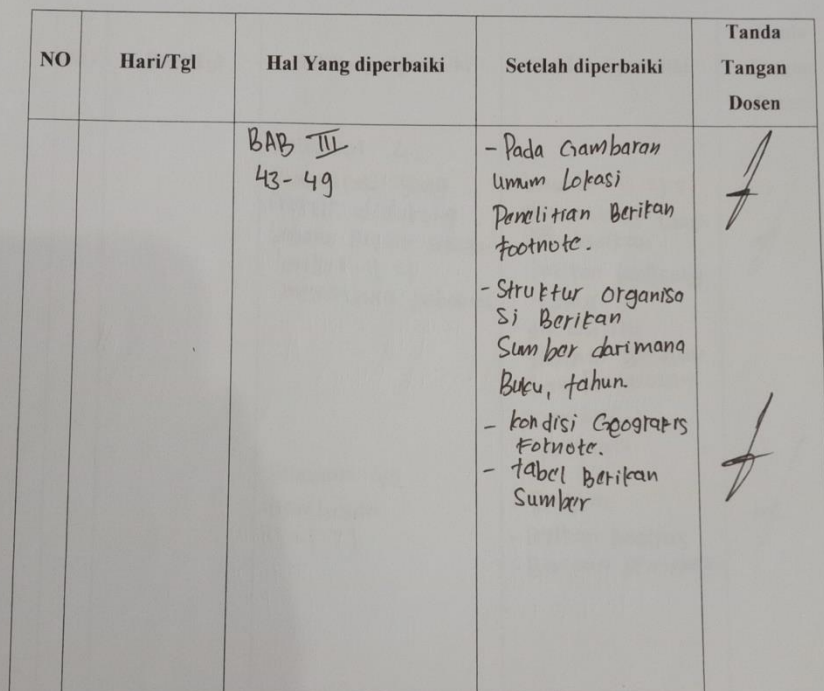 NO
Hari/Tgl
Hal Yang diperbaiki
Setelah diperbaiki
Tanda
Tangan
Dosen
BAB III
43-49
- Pada Gambaran
umum Lokasi
Penelitian Berikan
footnote.
- Struktur organisa
si Berikan
Sumber darimana
Buku, tahun.
- kondisi Geografis
Fotnote.
- tabel Berikan
Sumber